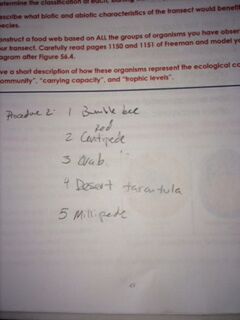 etermine the classification of each,
escribe what biotic and abiotic characteristics of the transect would benefit
pecies.
onstruct a food web based on ALL the groups of organisms you have obser
our transect. Carefully read pages 1150 and 1151 of Freeman and model yo
agram after Figure 56.4.
ve a short description of how these organisms represent the ecological co
ommunity", "carrying capacity", and "trophic levels".
Procedure 2: 1 Bumble bee
red
2 Centipede
3 Crab
4 Desert tarantula
5 Millipede